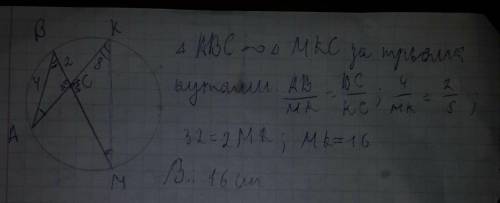 В
К
2
4
8
С
А
М
△ ABC ~ △ MKC за трьома
кутами. AB/MK = BC/KC; 4/MK = 2/8;
32=2MK; MK=16
В.: 16 см